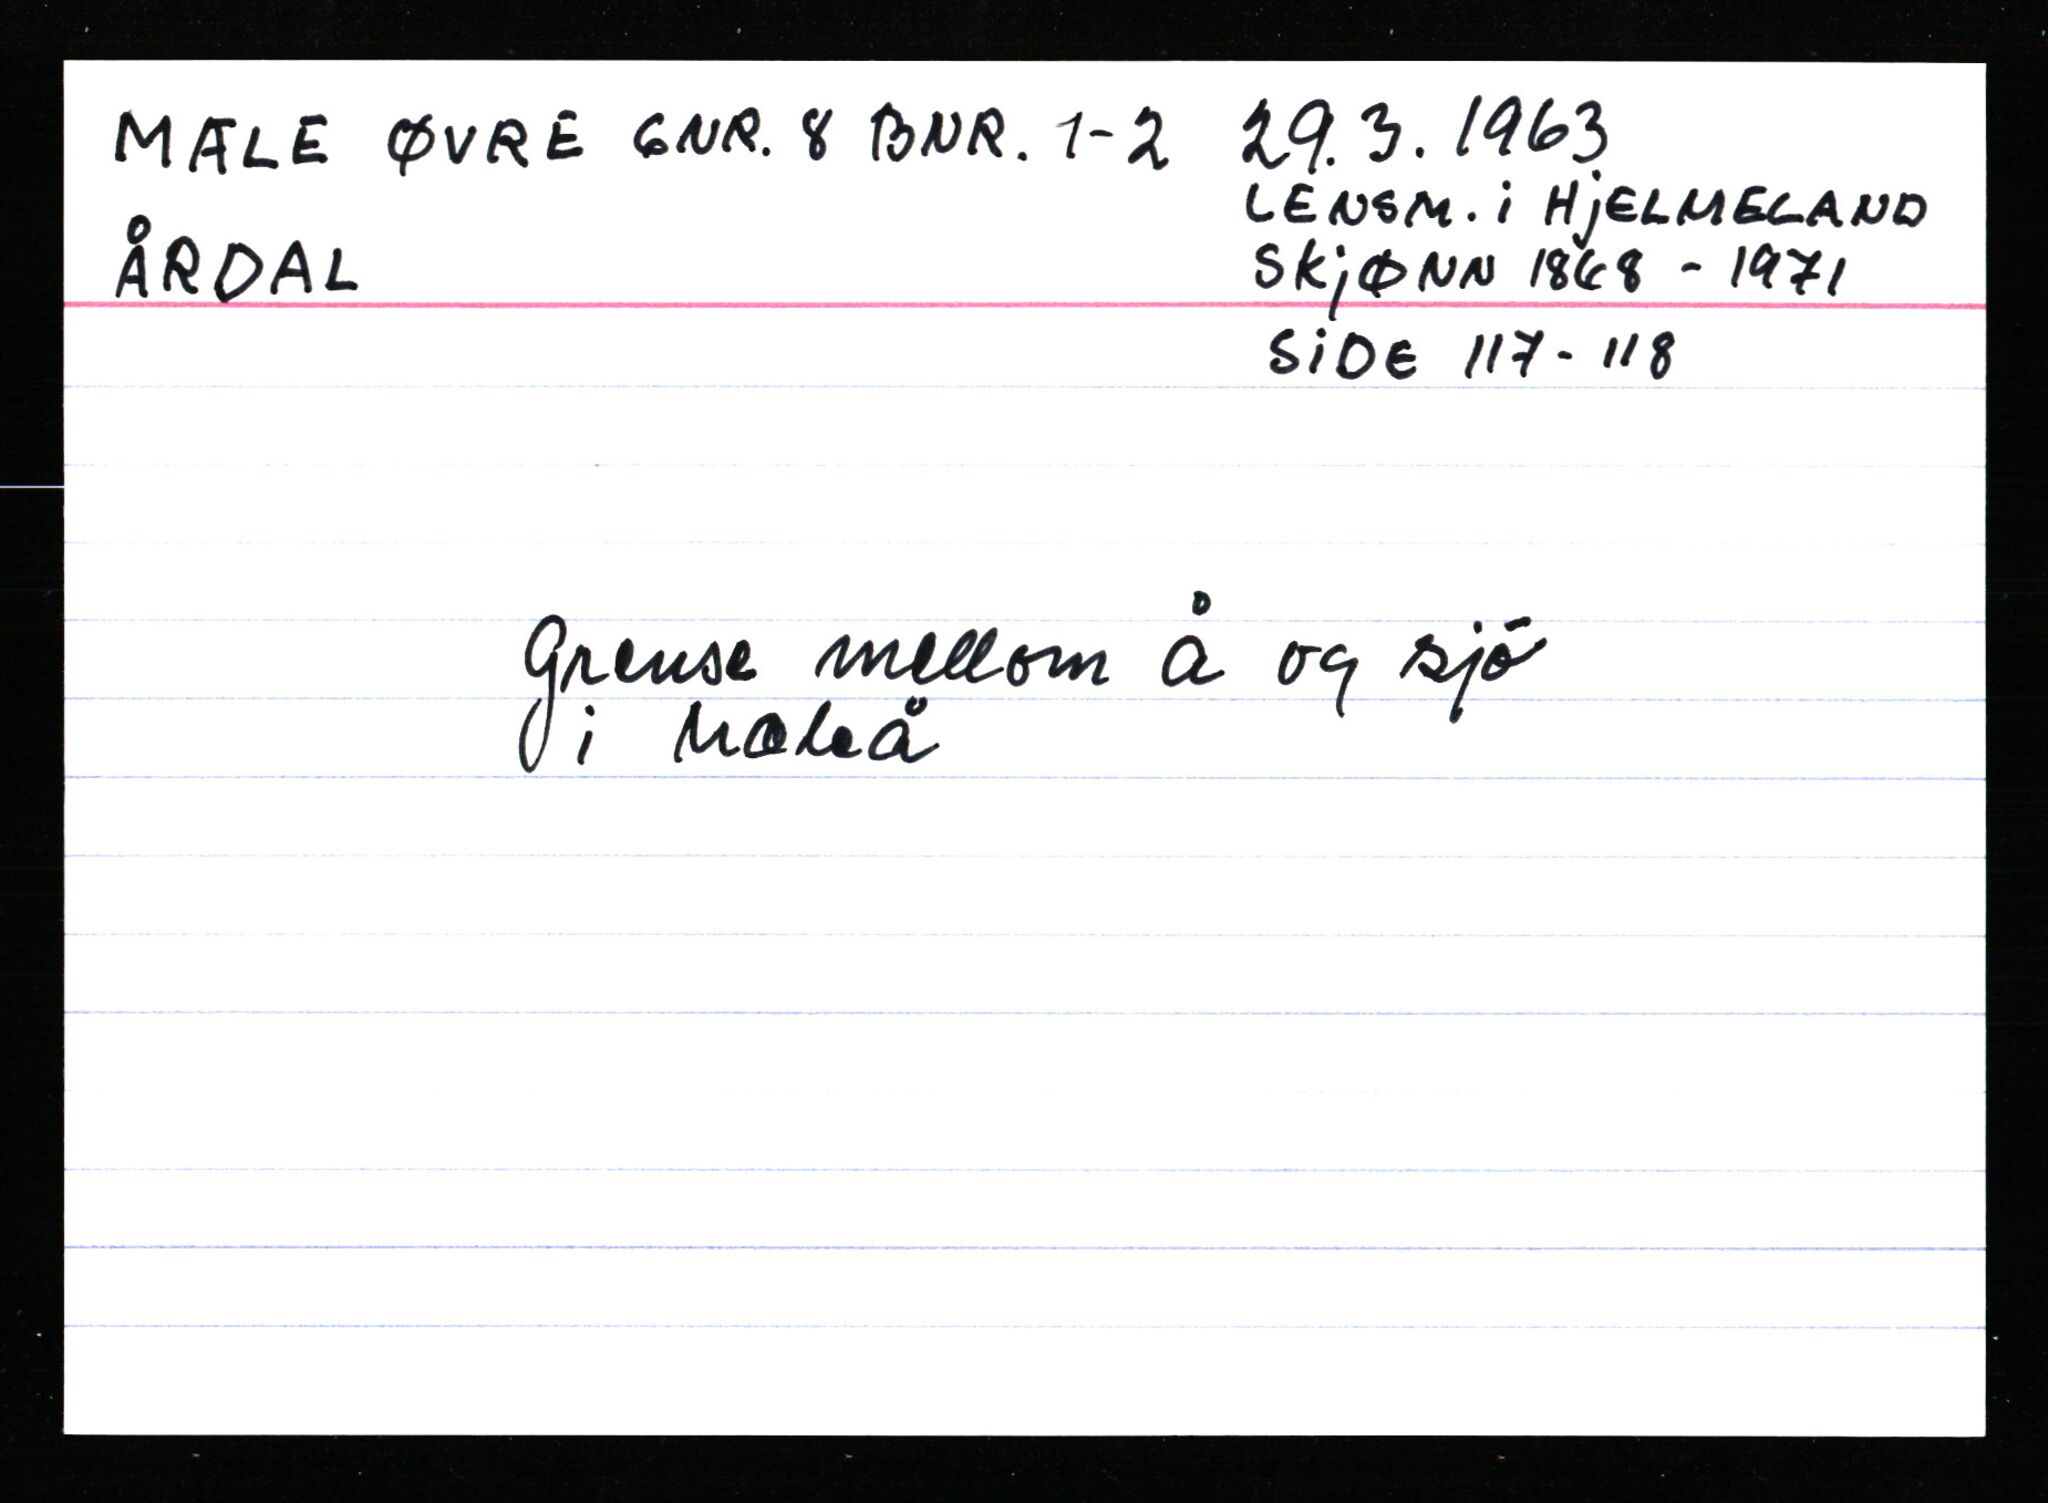 MÆLE ØVRE GNR. 8 BNR. 1-2 29.3.1963
LENSM. i HjELMELAND
ÅRDAL SKjØNN 1868 - 1971
SiDE 117-118
Grense mellom å og sjö
i Mæleå